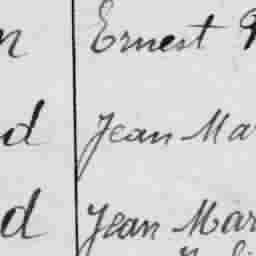 n Ernest
d Jean Mar
d Jean Mar